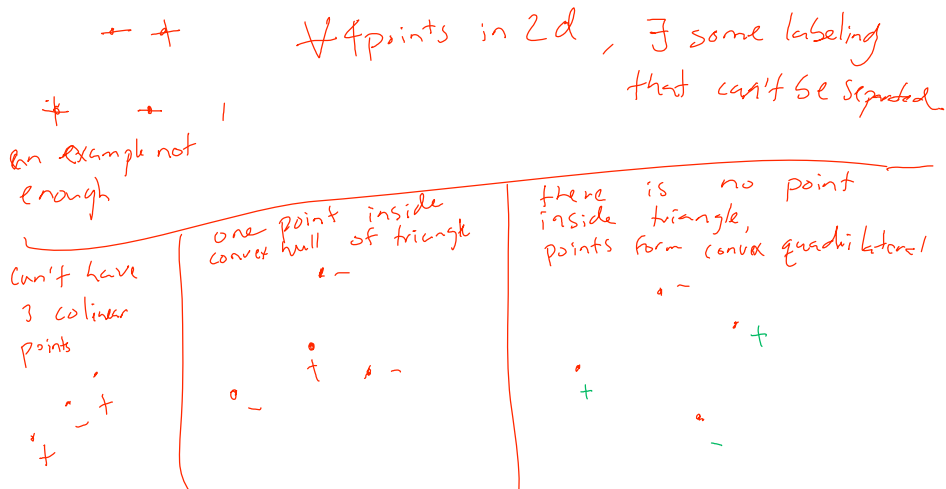 ∀ 4 points in 2d, ∃ some labeling
that can't be separated
an example not
enough
Can't have
3 colinear
points
+
-
+
one point inside
convex hull of triangle
-
+
-
-
there is no point
inside triangle,
points form convex quadrilateral
-
+
+
-